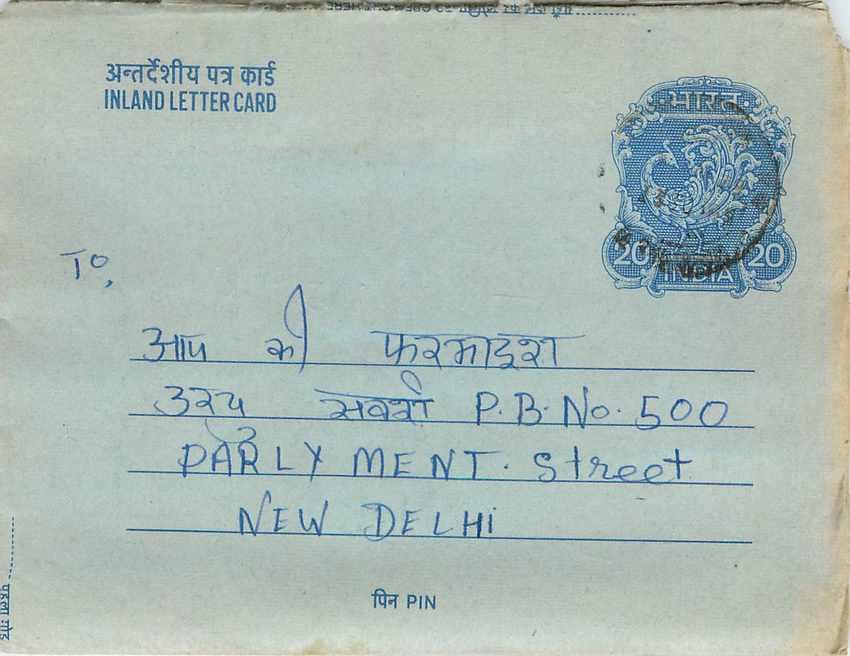 अन्तर्देशीय पत्र कार्ड
INLAND LETTER CARD
भारत
20 20
INDIA
To,
आप की फरमाइश
उरदु सर्वश P.B. No. 500
PARLYMENT. Street
NEW DELHI
पिन PIN
पहला मोड़